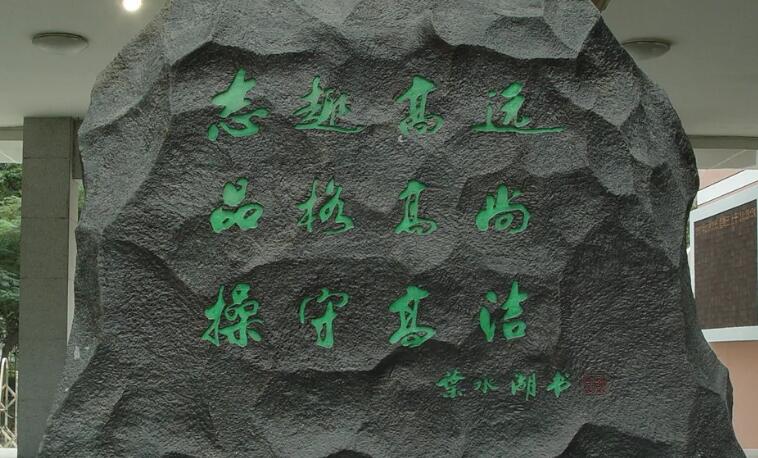 志趣高远
品格高尚
操守高洁
葉水湖书